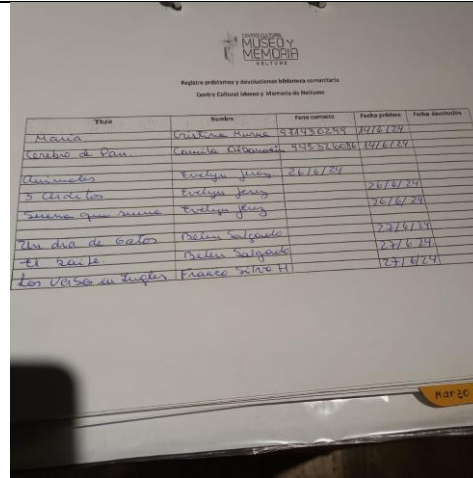 CENTRO CULTURAL
MUSEO Y
MEMORIA
NELTUME
Registro préstamos y devoluciones biblioteca comunitaria
Centro Cultural Museo y Memoria de Neltume
Titulo Nombre Fono contacto Fecha préstamo Fecha devolución
María Cristina 14/6/24
Cerebro de Pan. Camila 14/6/24
Animales Evelyn Jerez 26/6/24
3 cerditos Evelyn Jerez 26/6/24
Suena que suena Evelyn Jerez 26/6/24
Un dia de Gatos Belen Salgado 27/6/24
El baile. Belen Salgado 27/6/24
Los Versos en Ingles Franco Silva H 27/6/24
Marzo